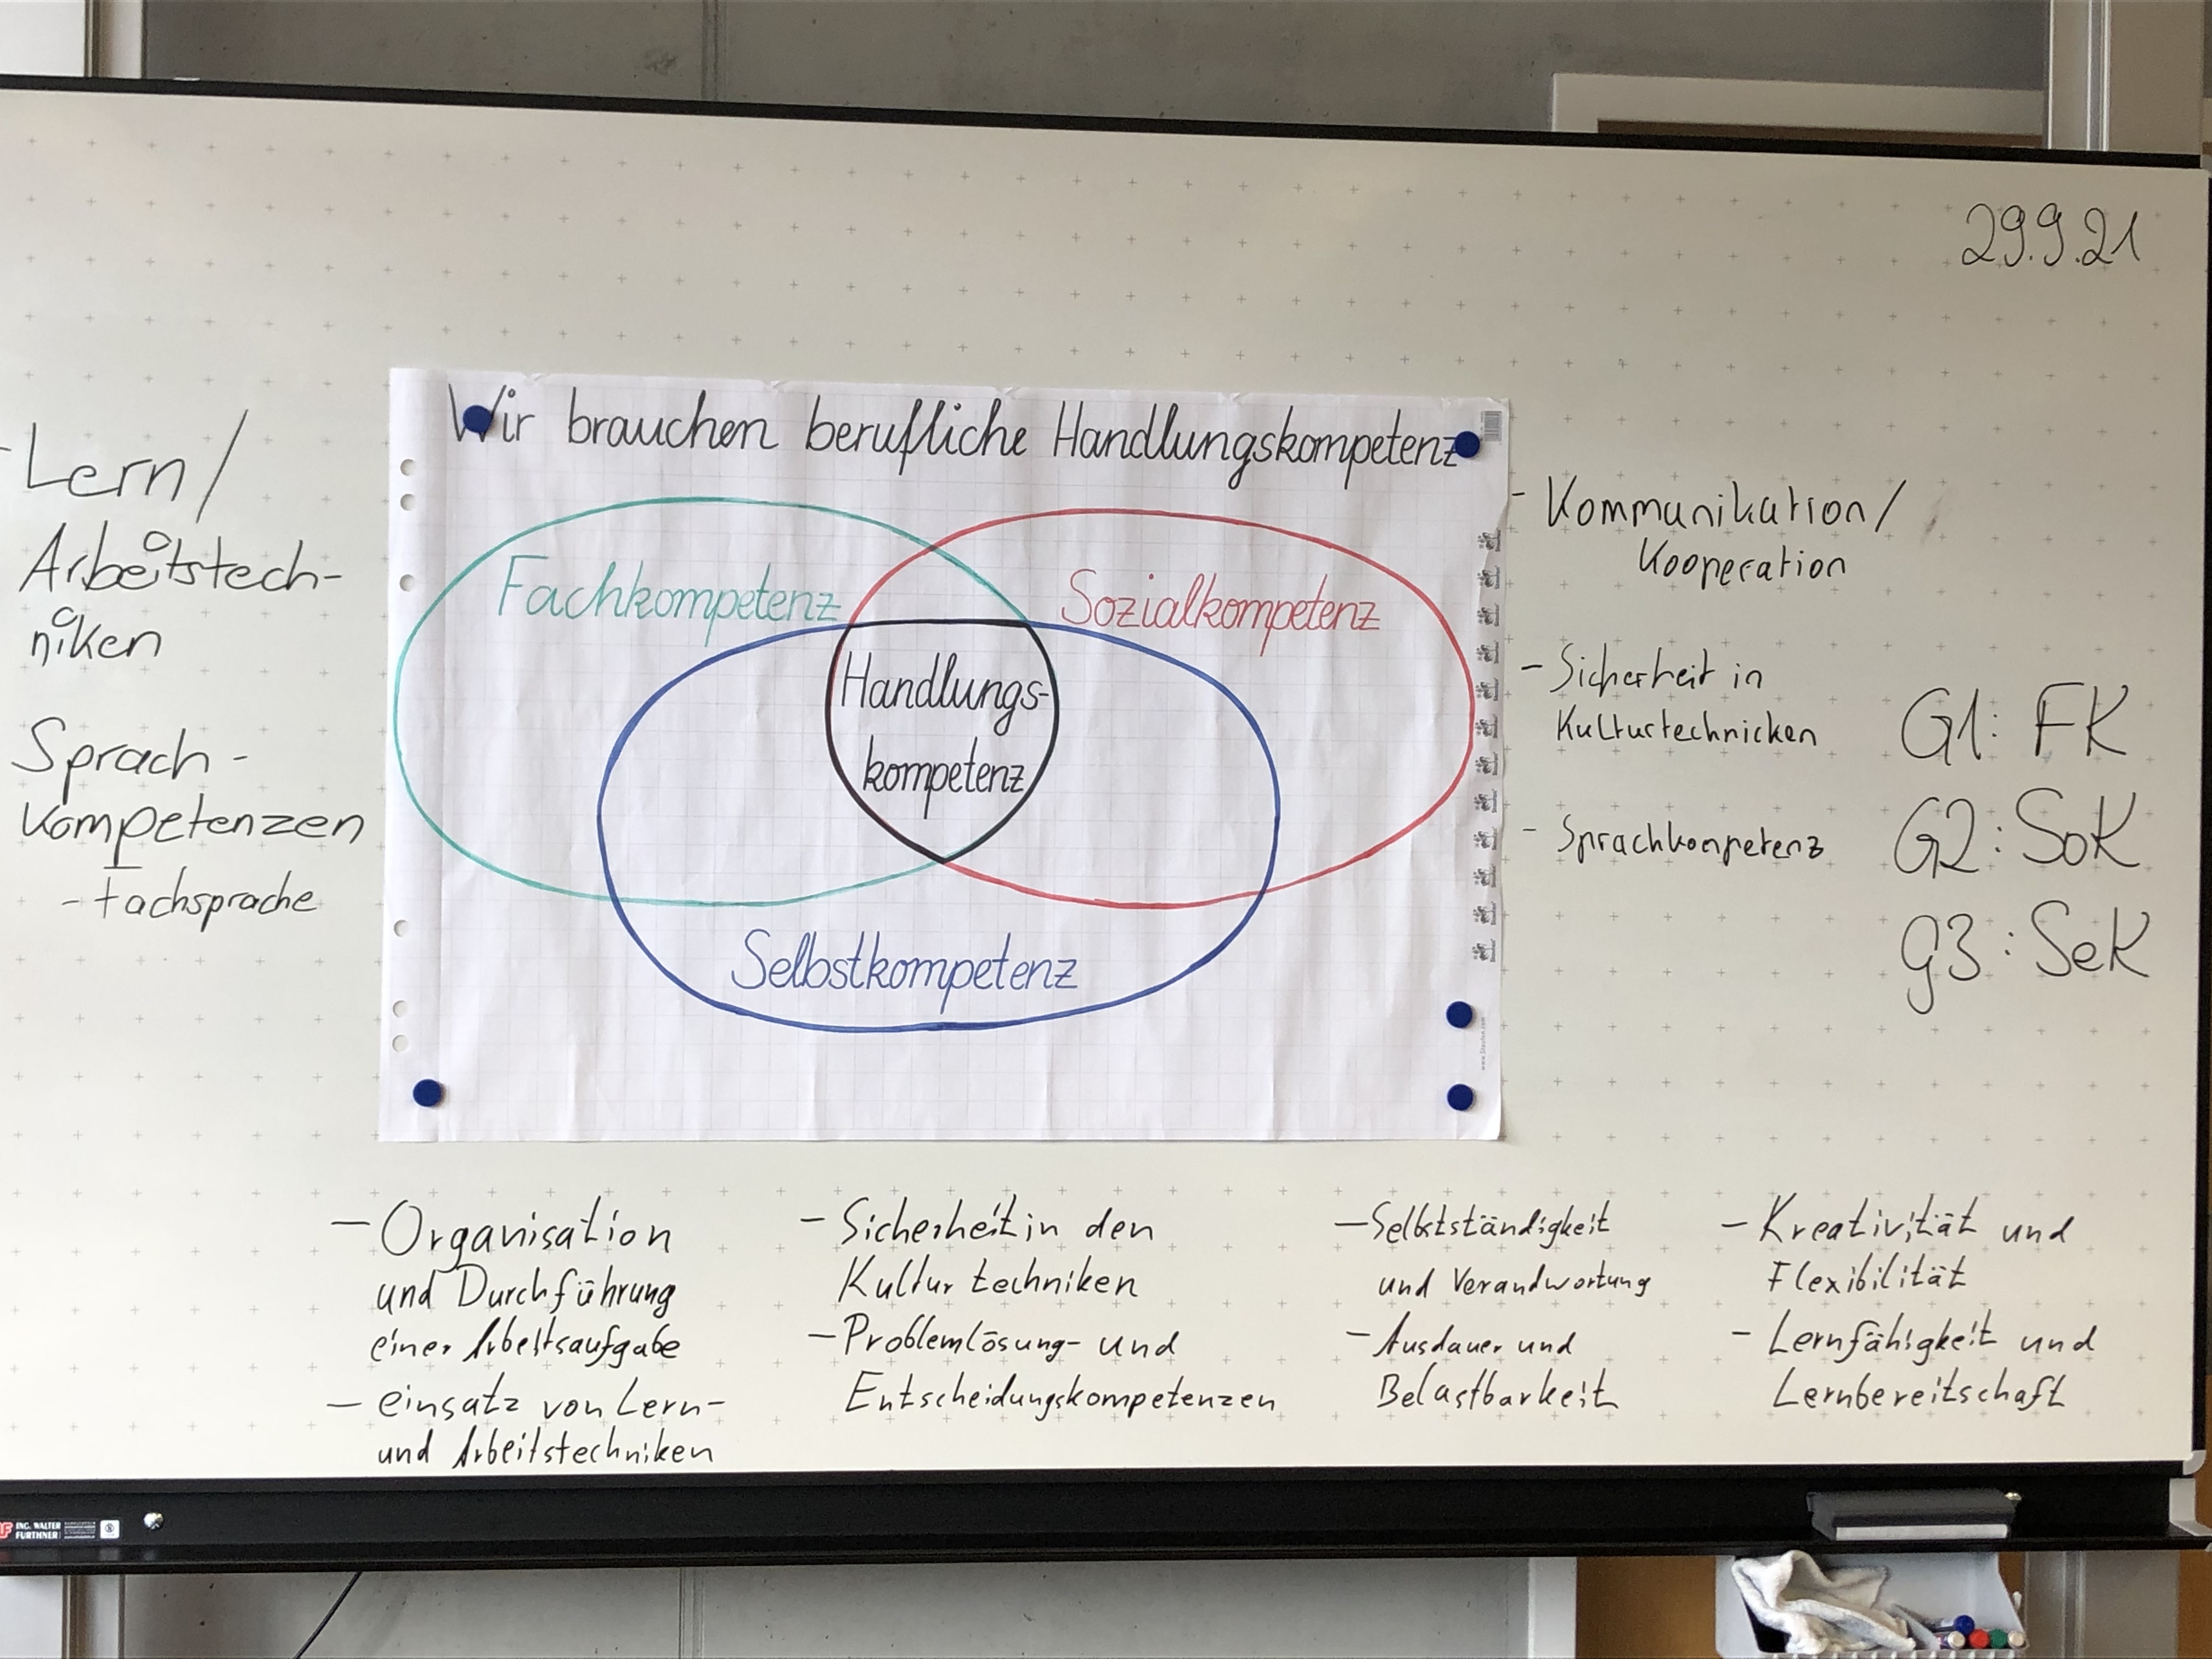 29.9.21
Wir brauchen berufliche Handlungskompetenz
Fachkompetenz
Sozialkompetenz
Handlungs-
kompetenz
Selbstkompetenz
- Lern/
Arbeitstech-
niken
Sprach-
kompetenzen
- Fachsprache
- Kommunikation/
Kooperation
- Sicherheit in
Kulturtechnicken
- Sprachkompetenz
G1: FK
G2: SoK
G3: SeK
- Organisation
und Durchführung
einer Arbeitsaufgabe
- einsatz von Lern-
und Arbeitstechniken
- Sicherheit in den
Kulturtechniken
- Problemlösung- und
Entscheidungskompetenzen
- Selbstständigkeit
und Verandwortung
- Ausdauer und
Belastbarkeit
- Kreativität und
Flexibilität
- Lernfähigkeit und
Lernbereitschaft
ING. WALTER
FURTHNER